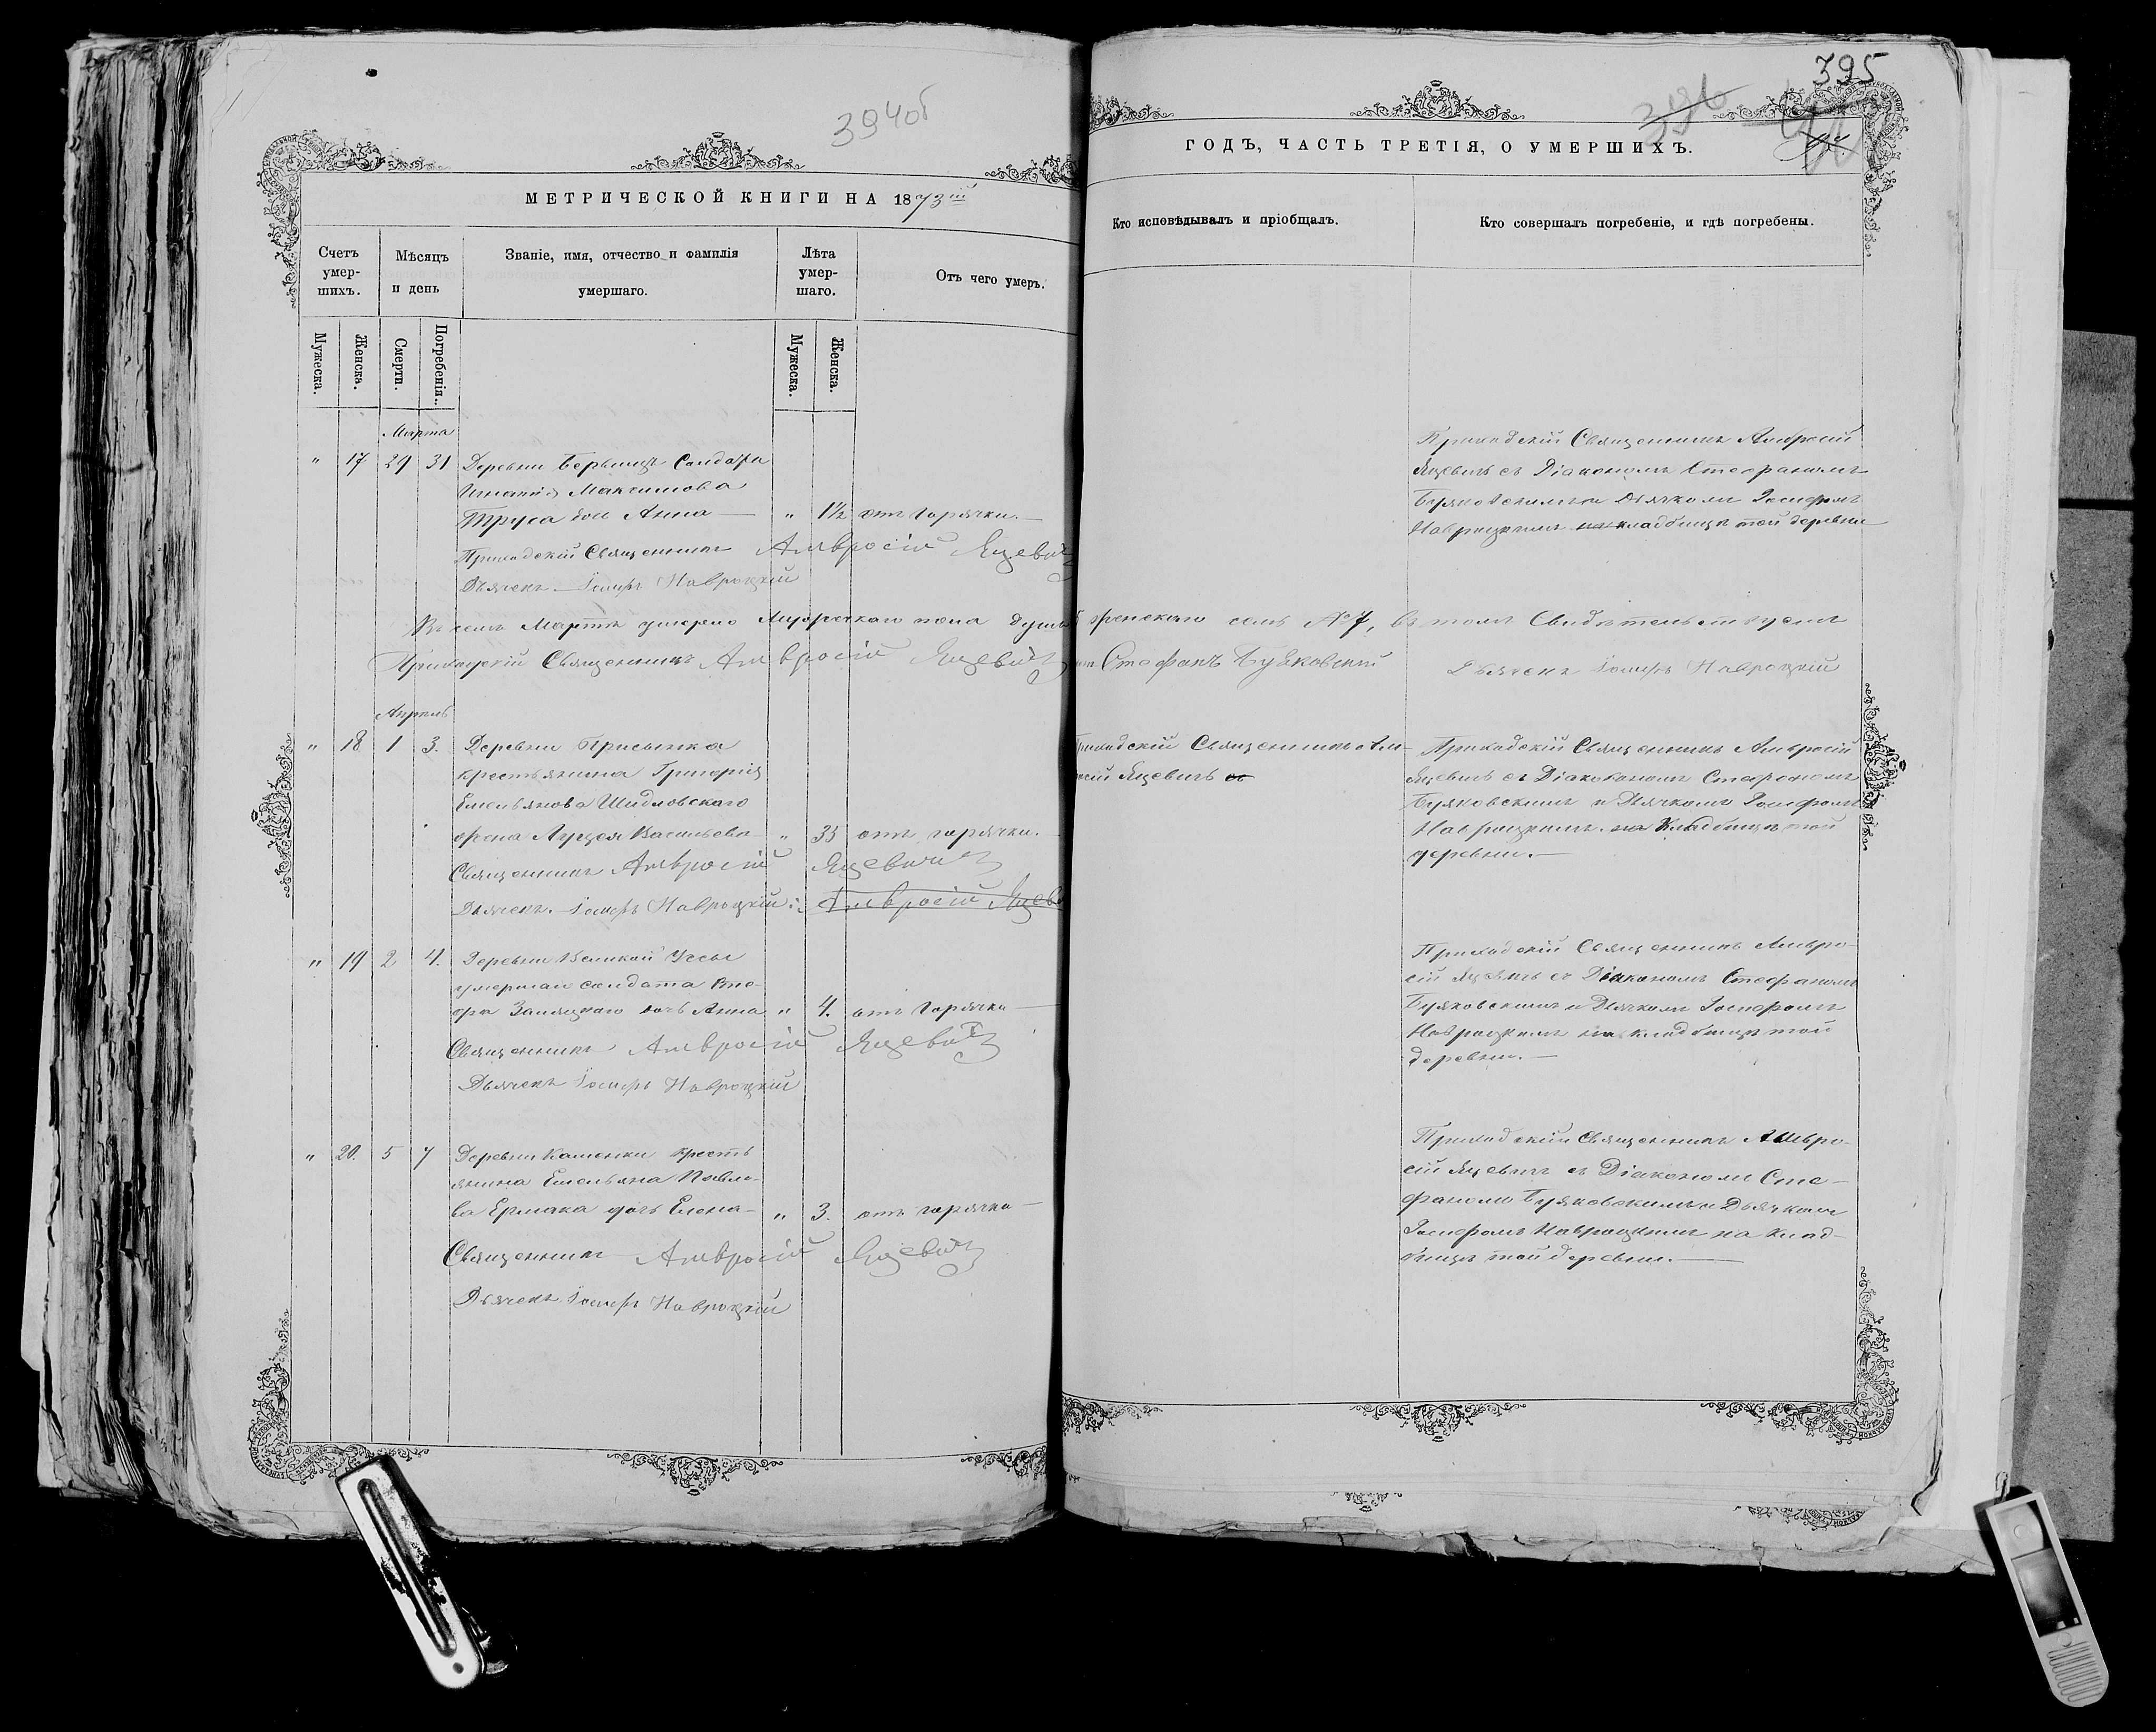 394об
МЕТРИЧЕСКОЙ КНИГИ НА 1873ій
Счетъ умер-шихъ.
Мѣсяцъ и день
Званіе, имя, отчество и фамилія умершаго.
Лѣта умер-шаго.
Отъ чего умеръ.
Мужеска.
Женска.
Смерти.
Погребенія.
Мужеска.
Женска.
Марта
" 17 29 31 Деревни Солдата
Игнатія Максимова
Труса дочь Анна — " 1½ отъ горячки. —
Приходскій Священникъ Амвросій Яцевичъ
Дьячекъ Іосифъ Навроцкій
Въ семъ Мартѣ умерло Мужескаго пола душъ
Приходскій Священникъ Амвросій Яцевичъ
Апрель
" 18 1 3. Деревни Присынка
крестьянина Григорія
Емельянова Шидловскаго
жена Луцея Васильева — " 35 отъ горячки. —
Священникъ Амвросій Яцевичъ
Дьячекъ Іосифъ Навроцкій Амвросій Яцев
" 19 2 4. Деревни Великой Уссы
умершаго солдата
Запяцкаго дочь Анна " 4. отъ горячки —
Священникъ Амвросій Яцевичъ
Дьячекъ Іосифъ Навроцкій
" 20. 5 7 Деревни Каменки кресть
янина Емельяна Павло-
ва Ермака дочь Елена — " 3. отъ горячки —
Священникъ Амвросій Яцевичъ
Дьячекъ Іосифъ Навроцкій
395
396
ГОДЪ, ЧАСТЬ ТРЕТІЯ, О УМЕРШИХЪ.
Кто исповѣдывалъ и пріобщалъ.
Кто совершалъ погребеніе, и гдѣ погребены.
Приходскій Священникъ Амвросій
Яцевичъ съ Діакономъ Стефаномъ
Буяковскимъ и Дьячкомъ Іосифомъ
Навроцкимъ на кладбищѣ той деревни
женскаго семь № 7, въ томъ Свидѣтельствуемъ
Стефанъ Буяковскій Дьячекъ Іосифъ Навроцкій
Приходскій Священникъ Ам-
росій Яцевичъ съ
Приходскій Священникъ Амвросій
Яцевичъ съ Діакономъ Стефаномъ
Буяковскимъ и Дьячкомъ Іосифомъ
Навроцкимъ на Кладбищѣ той
деревни. —
Приходскій Священникъ Амвро-
сій Яцевичъ съ Діакономъ Стефаномъ
Буяковскимъ и Дьячкомъ Іосифомъ
Навроцкимъ на кладбищѣ той
деревни. —
Приходскій Священникъ Амвро-
сій Яцевичъ съ Діакономъ Сте-
фаномъ Буяковскимъ и Дьячкомъ
Іосифомъ Навроцкимъ на клад-
бищѣ той деревни. —